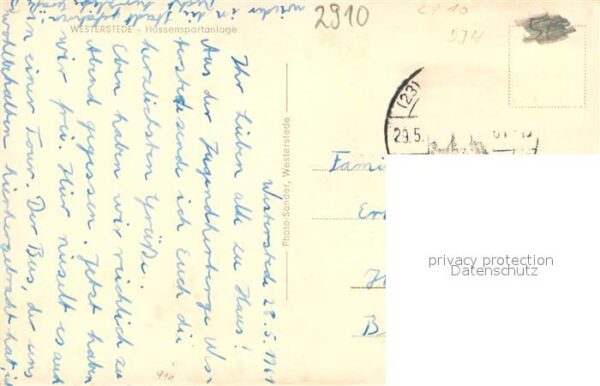 WESTERSTEDE - Hössensportanlage
Photo-Sander, Westerstede
2910
2910
534
(23)
29.5.
Westerstede 28.5.1961
Ihr Lieben alle zu Haus!
Aus der Jugendherberge Wes-
terstede sende ich Euch die
herzlichsten Grüße.
Eben haben wir reichlich zu
Abend gegessen. Jetzt haben
wir frei. Hier nieselt es auf
in einer Tour. Der Bus, der uns
wohlbehalten hierhergebracht hat, is
wieder in die Stadt gefahren
Famili
B
privacy protection
Datenschutz